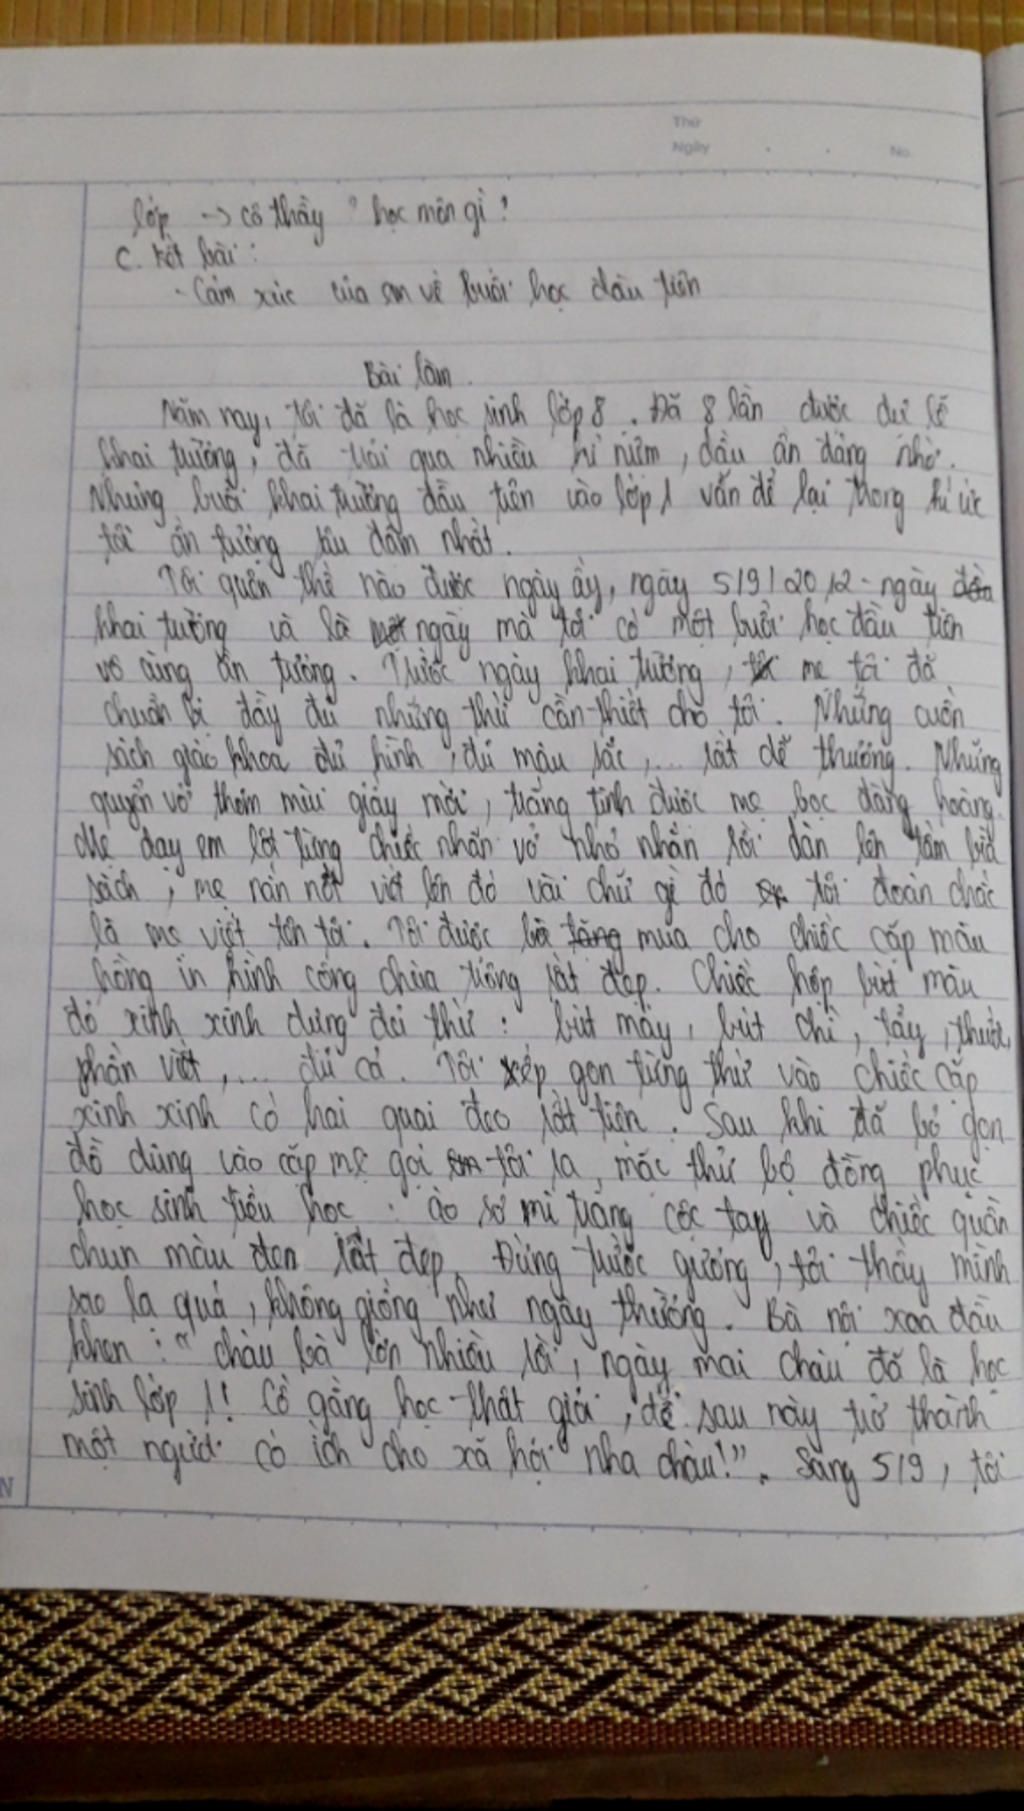 Thứ
Ngày . . No.
lớp -> cô thầy ? học môn gì ?
C. Kết bài :
- Cảm xúc của em về buổi học đầu tiên
Bài làm.
Năm nay, tôi đã là học sinh lớp 8. Đã 8 lần được dự lễ
khai trường, đã trải qua nhiều kỉ niệm, dấu ấn đáng nhớ.
Nhưng buổi khai trường đầu tiên vào lớp 1 vẫn để lại trong kí ức
tôi ấn tượng sâu đậm nhất.
Tôi quên thế nào được ngày ấy, ngày 5/9/2012 - ngày
khai trường và là ngày mà tôi có một buổi học đầu tiên
vô cùng ấn tượng. Trước ngày khai trường, mẹ tôi đã
chuẩn bị đầy đủ những thứ cần thiết cho tôi. Những cuốn
sách giáo khoa đủ hình, đủ màu sắc,... rất dễ thương. Những
quyển vở thơm mùi giấy mới, trắng tinh được mẹ bọc đàng hoàng.
Mẹ dạy em lột từng chiếc nhãn vở nhỏ nhắn rồi dán lên tấm bìa
sách, mẹ nắn nót viết lên đó vài chữ gì đó tôi đoán chắc
là mẹ viết tên tôi. Tôi được mua cho chiếc cặp màu
hồng in hình công chúa trông rất đẹp. Chiếc hộp bút màu
đỏ xinh xinh đựng đủ thứ : bút máy, bút chì, tẩy, thước,
phấn viết,... đủ cả. Tôi xếp gọn từng thứ vào chiếc cặp
xinh xinh có hai quai đeo rất tiện. Sau khi đã bỏ gọn
đồ dùng vào cặp mẹ gọi tôi ra, mặc thử bộ đồng phục
học sinh tiểu học : áo sơ mi trắng cộc tay và chiếc quần
chun màu đen rất đẹp. Đứng trước gương, tôi thấy mình
sao lạ quá, không giống như ngày thường. Bà nội xoa đầu
khen : " cháu bà lớn nhiều rồi, ngày mai cháu đã là học
sinh lớp 1! Cố gắng học thật giỏi, để sau này trở thành
một người có ích cho xã hội nha cháu!". Sáng 5/9, tôi